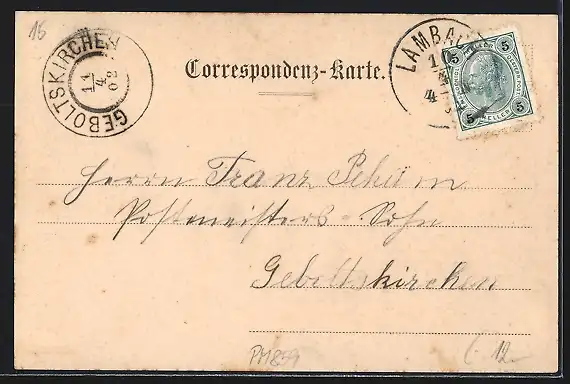 15
GEBOLTSKIRCHEN
11
4
02
Correspondenz-Karte.
LAMBACH
10
4
5 5
HELLER
5 5
Herrn Franz
Postmeisters-Sohn
Geboltskirchen
PM859
12